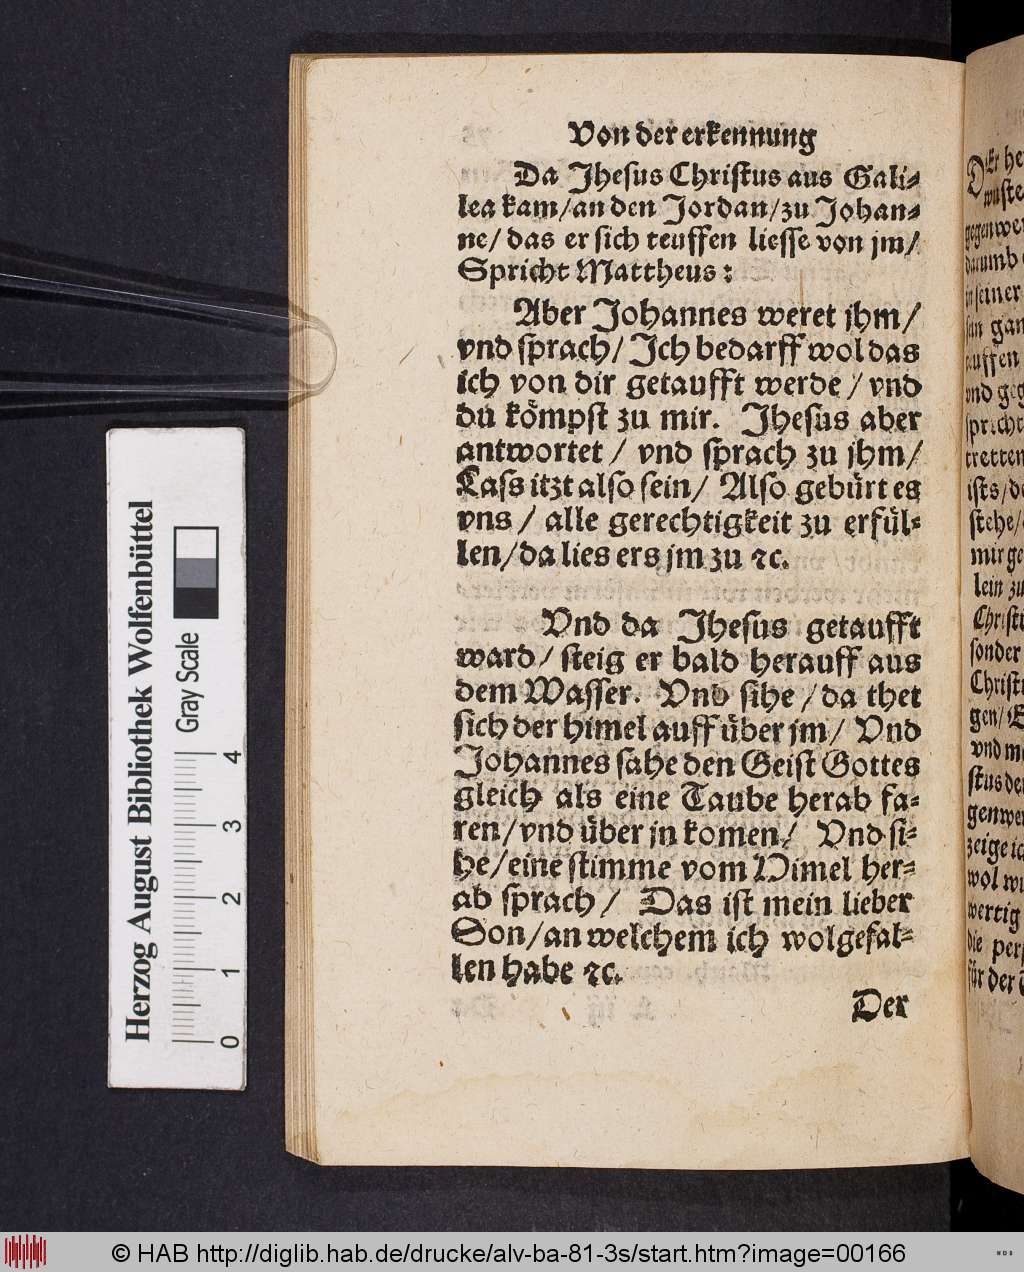 Von der erkennung
Da Jhesus Christus aus Gali-
lea kam/an den Jordan/zu Johan-
ne/ das er sich teuffen liesse von jm/
Spricht Mattheus:
Aber Johannes weret jhm/
vnd sprach/ Ich bedarff wol das
ich von dir getaufft werde/ vnd
du kömpst zu mir. Jhesus aber
antwortet/ vnd sprach zu jhm/
Lass itzt also sein/ Also gebürt es
vns/ alle gerechtigkeit zu erfül-
len/da lies ers jm zu ꝛc.
Vnd da Jhesus getaufft
ward/ steig er bald herauff aus
dem Wasser. Vnd sihe/da thet
sich der himel auff über jm/ Vnd
Johannes sahe den Geist Gottes
gleich als eine Taube herab fa-
ren/vnd über jn komen/ Vnd si-
he/eine stimme vom Himel her-
ab sprach/ Das ist mein lieber
Son/an welchem ich wolgefal-
len habe ꝛc.
Der
Herzog August Bibliothek Wolfenbüttel
Gray Scale
0 1 2 3 4
gegen
darumb
in seiner
auffen
vnd
spricht
tretten
ists/
stehe/
mir
lein
sonder
gen/
vnd
zeige
wol
wertig
die
für der
© HAB http://diglib.hab.de/drucke/alv-ba-81-3s/start.htm?image=00166